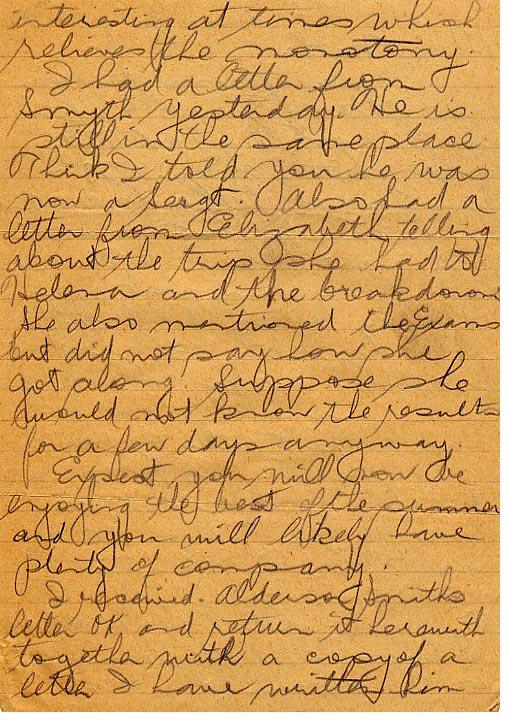 interesting at times which
relieves the monotony.
I had a letter from
Smyth yesterday. He is
still in the same place
Think I told you he was
now a Sergt. I also had a
letter from Elizabeth telling
about the trip she had to
Helena and the breakdown
She also mentioned the Exams
but did not say how she
got along. Suppose she
would not know the results
for a few days anyway.
Expect you will soon be
enjoying the best of the summer
and you will likely have
plenty of company.
I received Alderson Smiths
letter OK and return it herewith
together with a copy of a
letter I have written him